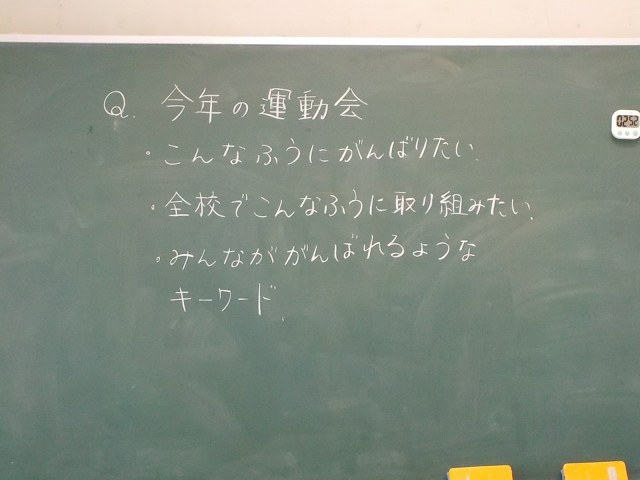 Q. 今年の運動会
・こんなふうにがんばりたい.
・全校でこんなふうに取り組みたい.
・みんなががんばれるような
キーワード.
02 52